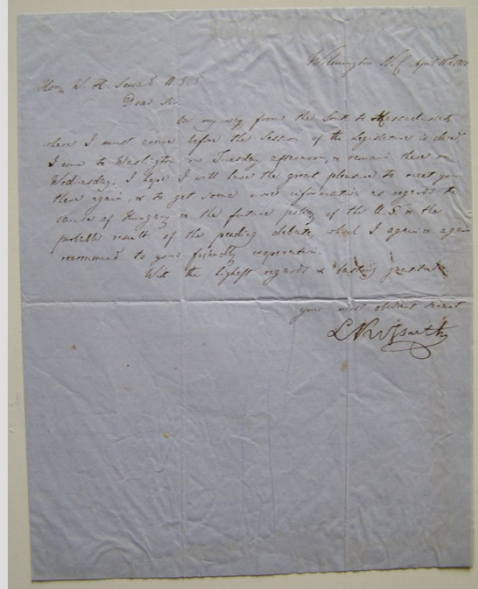 Wilmington N. C. April
Hon. W. H. Seward U. S. S.
Dear Sir
On my way from the South to Massachusetts
where I must arrive before the Session of the Legislature is closed
I come to Washington on Tuesday afternoon, & remain there on
Wednesday. I hope I will have the great pleasure to meet you
there again, & to get some more information as regards the
cause of Hungary, & the future policy of the U. S. & the
probable result of the pending debate, which I again & again
recommend to your friendly cooperation.
With the highest regards & lasting gratitude
your most obedient servant